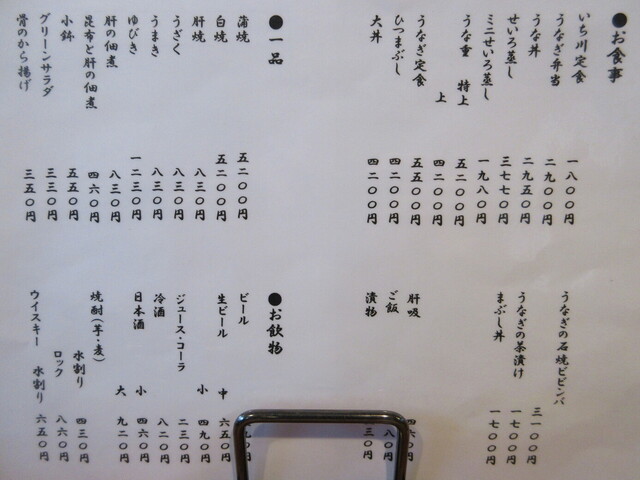 ●お食事
いち川定食 一八〇〇円
うなぎ弁当 二九〇〇円
うな丼 二九五〇円
せいろ蒸し 三七七〇円
ミニせいろ蒸し 一九八〇円
うな重 特上 五二〇〇円
上 四二〇〇円
うなぎ定食 五五〇〇円
ひつまぶし 四二〇〇円
大丼 四二〇〇円
●一品
蒲焼 五二〇〇円
白焼 五二〇〇円
肝焼 八三〇円
うざく 八三〇円
うまき 八三〇円
ゆびき 一二三〇円
肝の佃煮 八三〇円
昆布と肝の佃煮 四六〇円
小鉢 五五〇円
グリーンサラダ 三三〇円
骨のから揚げ 三五〇円
うなぎの石焼ビビンバ 三一〇〇円
うなぎの茶漬け 一七〇〇円
まぶし丼 一七〇〇円
肝吸
ご飯
漬物
●お飲物
ビール
生ビール 中 六五〇円
小 四九〇円
ジュース・コーラ 二三〇円
冷酒 八二〇円
日本酒 小 四六〇円
大 九二〇円
焼酎(芋・麦) 水割り 四三〇円
ロック 八六〇円
ウイスキー 水割り 六五〇円